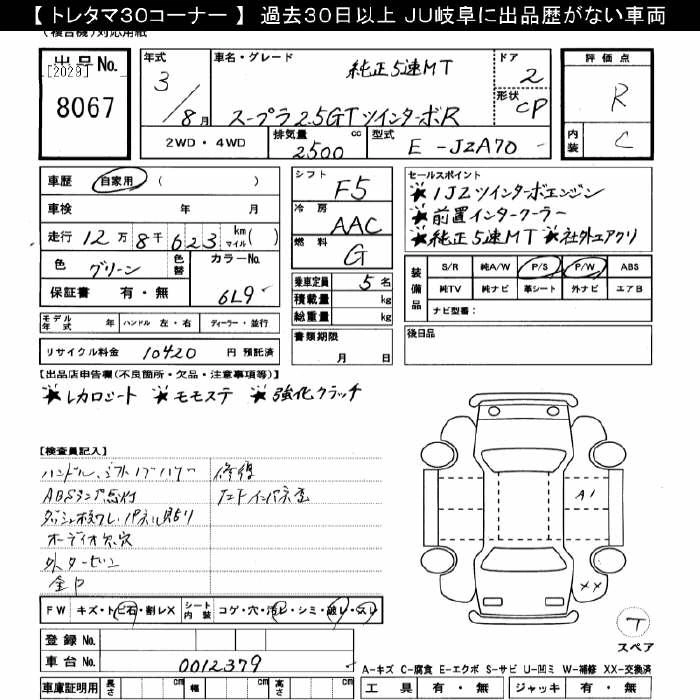 【 トレタマ30コーナー 】 過去30日以上 JU岐阜に出品歴がない車両
(複合機)対応用紙
出品No.
[2029]
8067
年式
3/8月
車名・グレード
純正5速MT
スープラ2.5GTツインターボR
ドア
2
形状
CP
評価点
R
内装
C
2WD・4WD
排気量
2500
cc
型式
E-JZA70
車歴
自家用
( )
車検 年 月
走行 12万8千623 km マイル( )
色
グリーン
色替
カラーNo.
6L9
保証書 有・無
モデル年式 年
ハンドル 左・右
ディーラー・並行
リサイクル料金 10420 円 預託済
シフト
F5
冷房
AAC
燃料
G
乗車定員 5 名
積載量 kg
総重量 kg
書類期限
月 日
セールスポイント
★1JZツインターボエンジン
★前置インタークーラー
★純正5速MT ★社外エアクリ
装備品
S/R 純A/W P/S P/W ABS
純TV 純ナビ 革シート 外ナビ エアB
ナビ型番:
後日品
【出品店申告欄(不良箇所・欠品・注意事項等)】
★レカロシート ★モモステ ★強化クラッチ
【検査員記入】
修復
ABSランプ点灯
オーディオ欠穴
FW キズ・トビ石・割レX
シート内装 コゲ・穴・汚レ・シミ・破レ・スレ
登録No.
車台No. 0012379
車庫証明用 長さ cm 幅 cm 高さ cm
A1
XX
T
スペア
A-キズ C-腐食 E-エクボ S-サビ U-凹ミ W-補修 XX-交換済
工具 有・無 ジャッキ 有・無